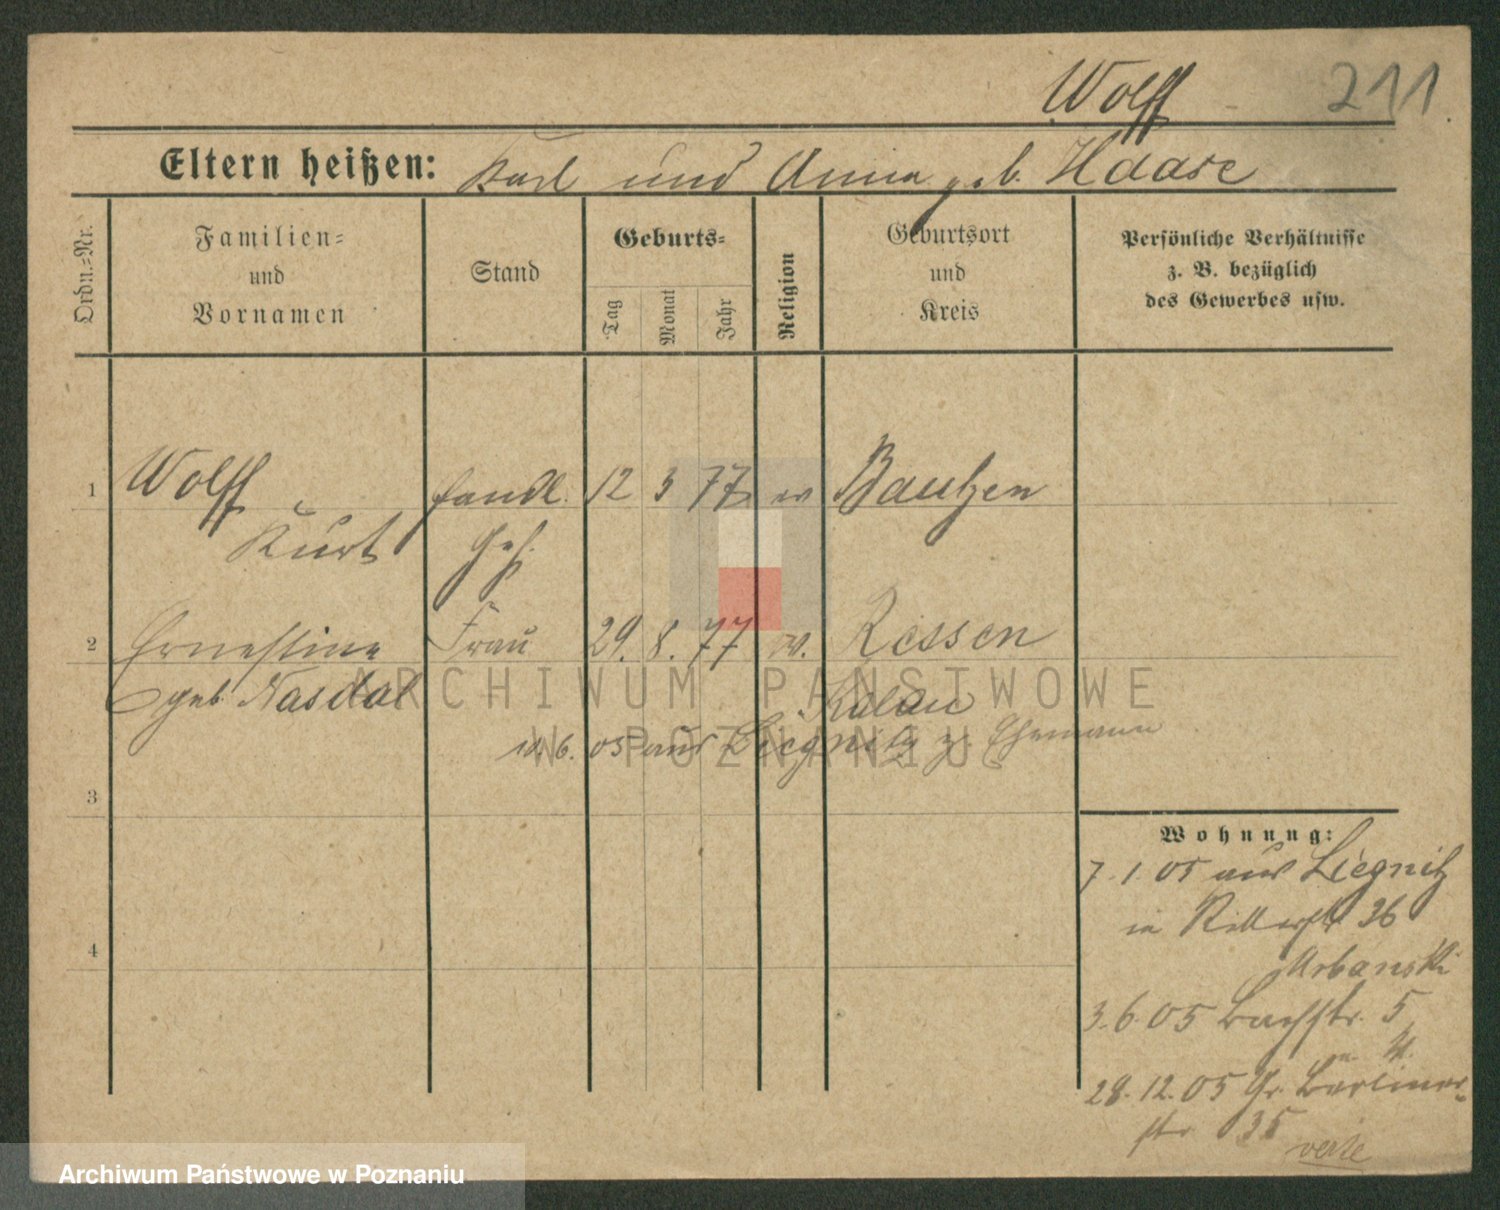 Wolff 211
Eltern heißen: Karl und Anna geb. Haase
Ordn.=Nr.
Familien=
und
Vornamen
Stand
Geburts=
Tag
Monat
Jahr
Religion
Geburtsort
und
Kreis
Persönliche Verhältnisse
z. B. bezüglich
des Gewerbes usw.
1 Wolff Handl. 12 3 77 ev Bautzen
Kurt Geh.
2 Ernestine Frau 29. 8. 77 ev. Ressen
geb Nasdal Kalau
6. 05 aus Liegnitz z. Ehemann
3
4
Wohnung:
7. 1. 05 aus Liegnitz
in Ritterstr 36
Urbanski
3. 6. 05 Bachstr. 5
28. 12. 05 Gr. Berliner-
str 35
verte
ARCHIWUM PAŃSTWOWE
W POZNANIU
Archiwum Państwowe w Poznaniu